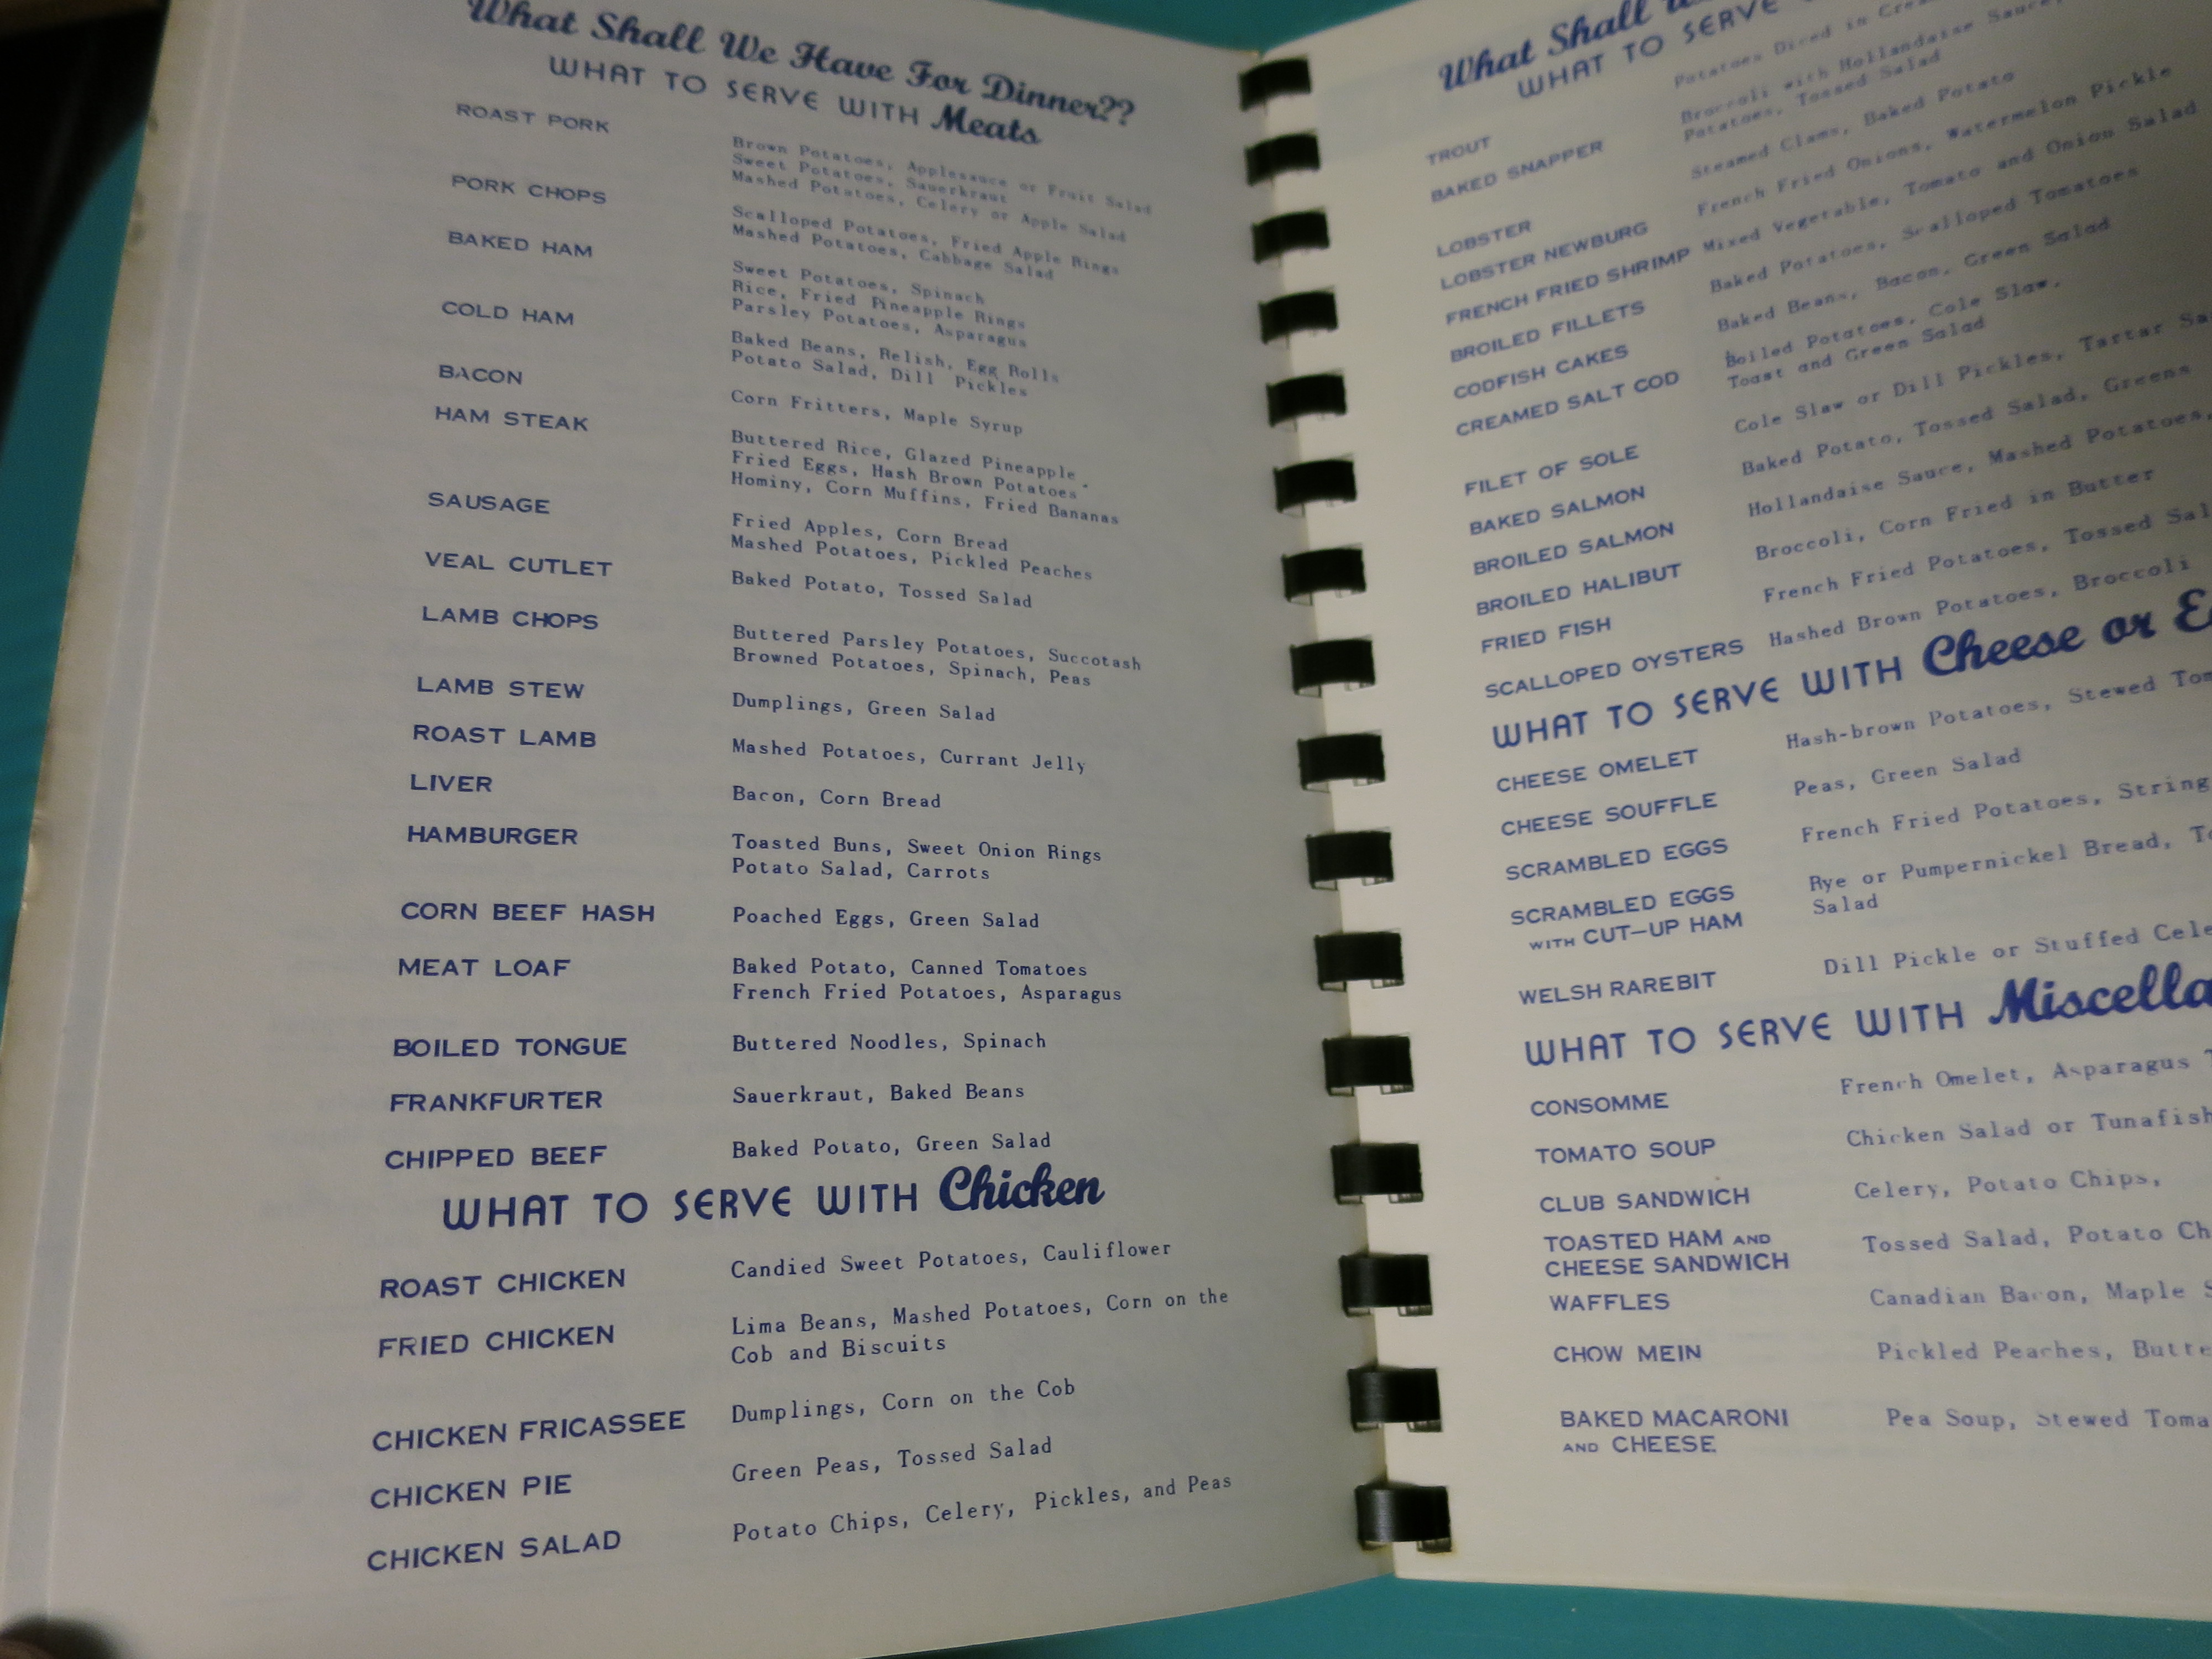 What Shall We Have For Dinner??
WHAT TO SERVE WITH Meats
ROAST PORK
Brown Potatoes, Applesauce or Fruit Salad
Sweet Potatoes, Sauerkraut
Mashed Potatoes, Celery or Apple Salad
PORK CHOPS
Scalloped Potatoes, Fried Apple Rings
Mashed Potatoes, Cabbage Salad
BAKED HAM
Sweet Potatoes, Spinach
Rice, Fried Pineapple Rings
Parsley Potatoes, Asparagus
COLD HAM
Baked Beans, Relish, Egg Rolls
Potato Salad, Dill Pickles
BACON
Corn Fritters, Maple Syrup
HAM STEAK
Buttered Rice, Glazed Pineapple
Fried Eggs, Hash Brown Potatoes
Hominy, Corn Muffins, Fried Bananas
SAUSAGE
Fried Apples, Corn Bread
Mashed Potatoes, Pickled Peaches
VEAL CUTLET
Baked Potato, Tossed Salad
LAMB CHOPS
Buttered Parsley Potatoes, Succotash
Browned Potatoes, Spinach, Peas
LAMB STEW
Dumplings, Green Salad
ROAST LAMB
Mashed Potatoes, Currant Jelly
LIVER
Bacon, Corn Bread
HAMBURGER
Toasted Buns, Sweet Onion Rings
Potato Salad, Carrots
CORN BEEF HASH
Poached Eggs, Green Salad
MEAT LOAF
Baked Potato, Canned Tomatoes
French Fried Potatoes, Asparagus
BOILED TONGUE
Buttered Noodles, Spinach
FRANKFURTER
Sauerkraut, Baked Beans
CHIPPED BEEF
Baked Potato, Green Salad
WHAT TO SERVE WITH Chicken
ROAST CHICKEN
Candied Sweet Potatoes, Cauliflower
FRIED CHICKEN
Lima Beans, Mashed Potatoes, Corn on the
Cob and Biscuits
CHICKEN FRICASSEE
Dumplings, Corn on the Cob
CHICKEN PIE
Green Peas, Tossed Salad
CHICKEN SALAD
Potato Chips, Celery, Pickles, and Peas
What Shall
WHAT TO SERVE
TROUT
Potatoes Diced in
BAKED SNAPPER
Broccoli with Hollandaise Sauce,
Potatoes, Tossed Salad
LOBSTER
Steamed Clams, Baked Potato
LOBSTER NEWBURG
French Fried Onions, Watermelon Pickle
FRENCH FRIED SHRIMP
Mixed Vegetable, Tomato and Onion Salad
BROILED FILLETS
Baked Potatoes, Scalloped Tomatoes
CODFISH CAKES
Baked Beans, Bacon, Green Salad
CREAMED SALT COD
Boiled Potatoes, Cole Slaw,
Toast and Green Salad
FILET OF SOLE
Cole Slaw or Dill Pickles, Tartar
BAKED SALMON
Baked Potato, Tossed Salad, Greens
BROILED SALMON
Hollandaise Sauce, Mashed Potatoes,
BROILED HALIBUT
Broccoli, Corn Fried in Butter
FRIED FISH
French Fried Potatoes, Tossed
SCALLOPED OYSTERS
Hashed Brown Potatoes, Broccoli
WHAT TO SERVE WITH Cheese or
CHEESE OMELET
Hash-brown Potatoes, Stewed
CHEESE SOUFFLE
Peas, Green Salad
SCRAMBLED EGGS
French Fried Potatoes, String
SCRAMBLED EGGS
WITH CUT-UP HAM
Rye or Pumpernickel Bread,
Salad
WELSH RAREBIT
Dill Pickle or Stuffed
WHAT TO SERVE WITH
CONSOMME
French Omelet, Asparagus
TOMATO SOUP
Chicken Salad or Tunafish
CLUB SANDWICH
Celery, Potato Chips,
TOASTED HAM AND
CHEESE SANDWICH
Tossed Salad, Potato
WAFFLES
Canadian Bacon, Maple
CHOW MEIN
Pickled Peaches,
BAKED MACARONI
AND CHEESE
Pea Soup, Stewed